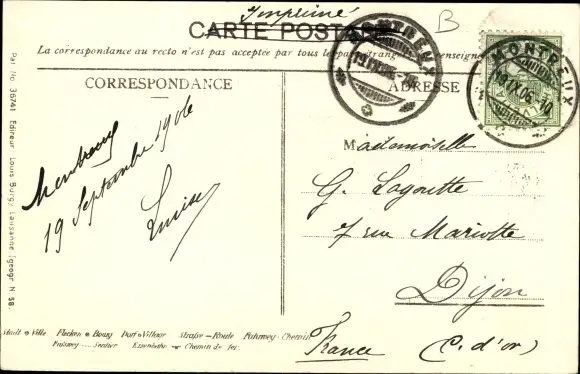 Imprimé
CARTE POSTALE
B
La correspondance au recto n'est pas acceptée par tous les pays étrangers renseigner
MONTREUX
19.IX.06
MONTREUX
19.IX.06.10
CORRESPONDANCE
ADRESSE
Montreux
19 Septembre 1906
Louise
Mademoiselle
G. Lagoutte
7 rue Mariotte
Dijon
France (C. d'or)
Stadt Ville Flecken Bourg Dorf Village Straße Route Fahrweg Chemin
Fussweg Sentier Eisenbahn Chemin de fer.
Pat. No. 36741 Editeur Louis Burgy, Lausanne (geogr. N 58.